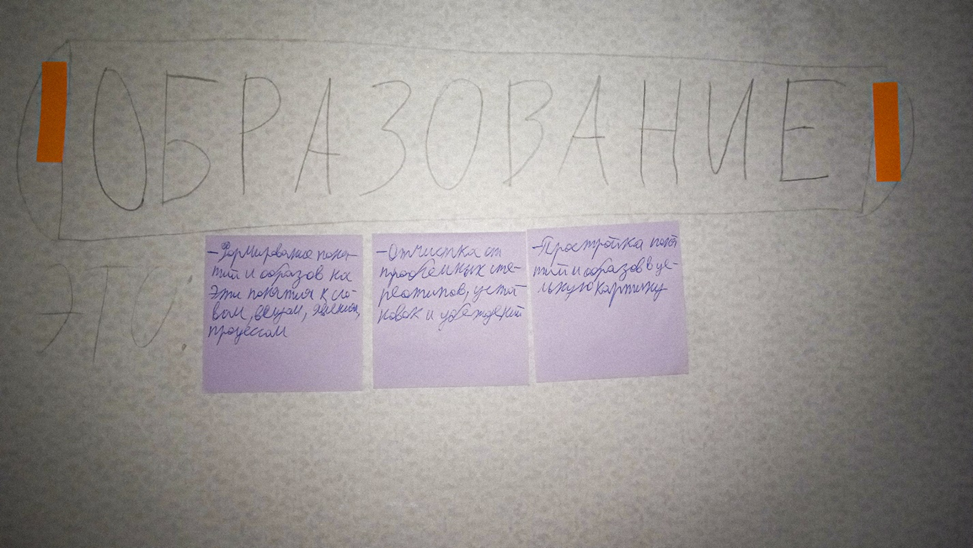 ОБРАЗОВАНИЕ
ЭТО:
- Формирование поня-
тий и образов на
эти понятия к сло-
вам, вещам, явлениям,
процессам
- Отчистка от
проблемных сте-
реотипов, уста
новок и убеждений
- Простройка поня
тий и образов в це-
льную картинку